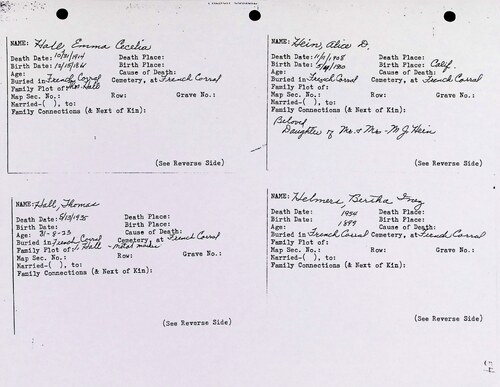 NAME: Hall, Emma Cecelia
Death Date: 10/21/1914 Death Place:
Birth Date: 12/15/1861 Birth Place:
Age: Cause of Death:
Buried in French Corral Cemetery, at French Corral
Family Plot of: Thos. Hall
Map Sec. No.: Row: Grave No.:
Married-( ), to:
Family Connections (& Next of Kin):
(See Reverse Side)
NAME: Hein, Alice D.
Death Date: 11/1/1908 Death Place:
Birth Date: Birth Place: Calif.
Age: Cause of Death:
Buried in French Corral Cemetery, at French Corral
Family Plot of:
Map Sec. No.: Row: Grave No.:
Married-( ), to:
Family Connections (& Next of Kin):
Beloved
Daughter of Mr. & Mrs. M J Hein
(See Reverse Side)
NAME: Hall, Thomas
Death Date: 5/10/1935 Death Place:
Birth Date: Birth Place:
Age: 31-8-23 Cause of Death:
Buried in French Corral Cemetery, at French Corral
Family Plot of: T. Hall - metal marker
Map Sec. No.: Row: Grave No.:
Married-( ), to:
Family Connections (& Next of Kin):
(See Reverse Side)
NAME: Helmers, Bertha Inez
Death Date: 1954 Death Place:
Birth Date: 1899 Birth Place:
Age: Cause of Death:
Buried in French Corral Cemetery, at French Corral
Family Plot of:
Map Sec. No.: Row: Grave No.:
Married-( ), to:
Family Connections (& Next of Kin):
(See Reverse Side)